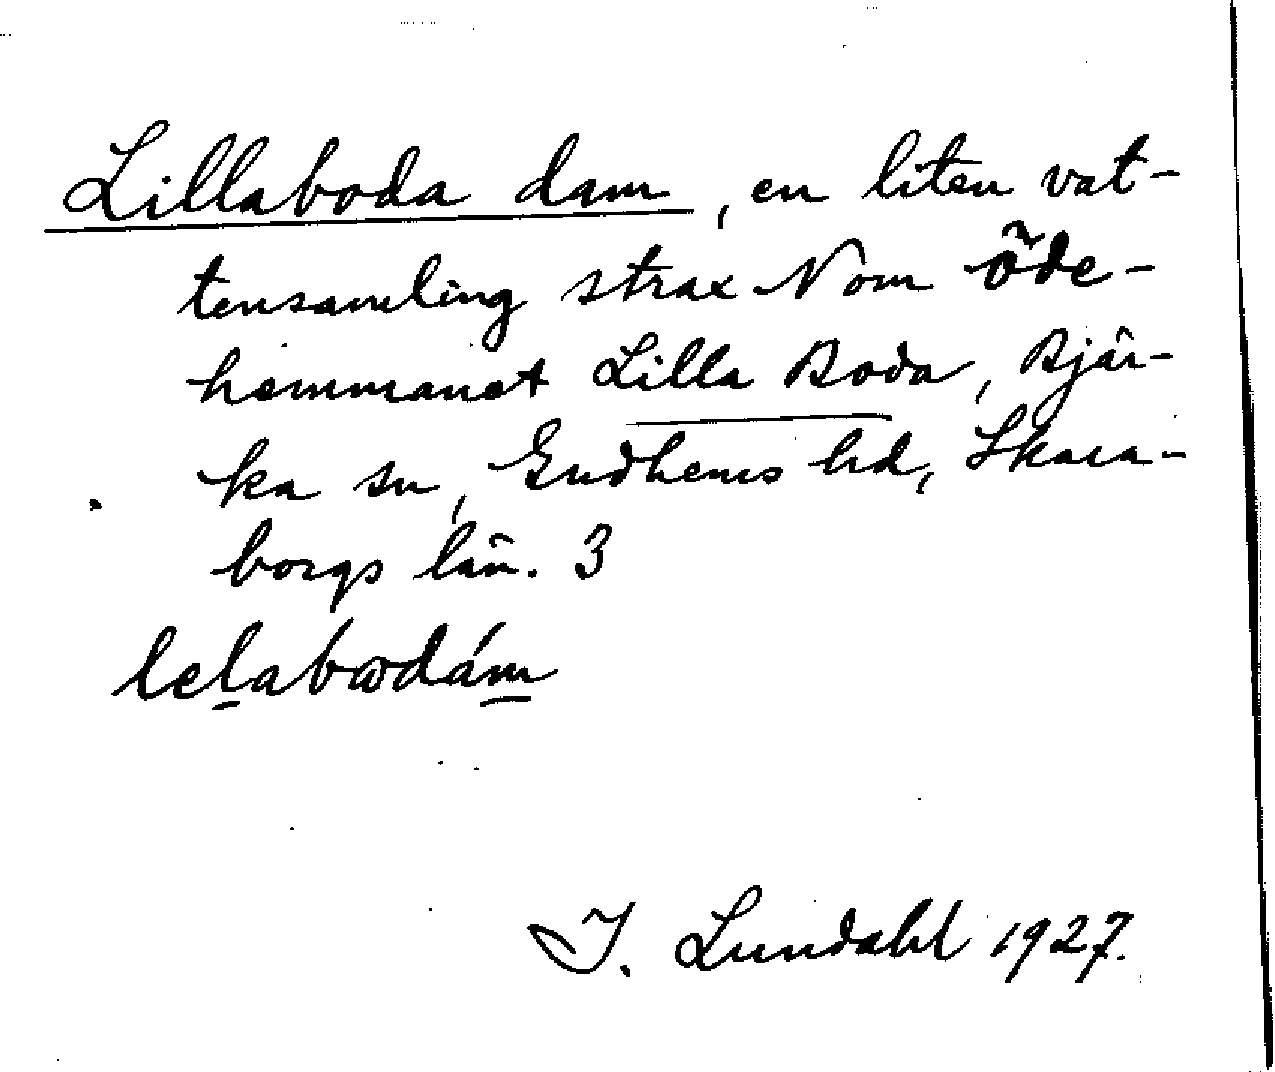 Lillaboda dam, en liten vat-
tensamling strax N om öde-
hemmanet Lilla Boda, Bjär-
ka sn, Gudhems hd, Skara-
borgs län. 3
lelabωdám
I. Lundahl 1927.